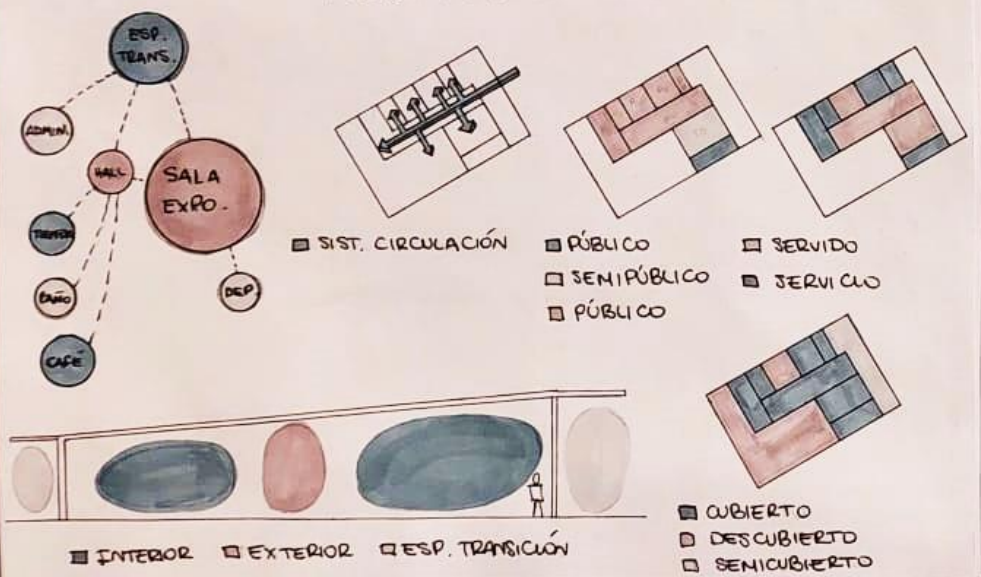 ESP.
TRANS.
ADMIN.
HALL
SALA
EXPO.
BAÑO
DEP.
CAFÉ
SIST. CIRCULACIÓN
PÚBLICO
SEMIPÚBLICO
PÚBLICO
SERVIDO
SERVICIO
CUBIERTO
DESCUBIERTO
SEMICUBIERTO
INTERIOR EXTERIOR ESP. TRANSICIÓN